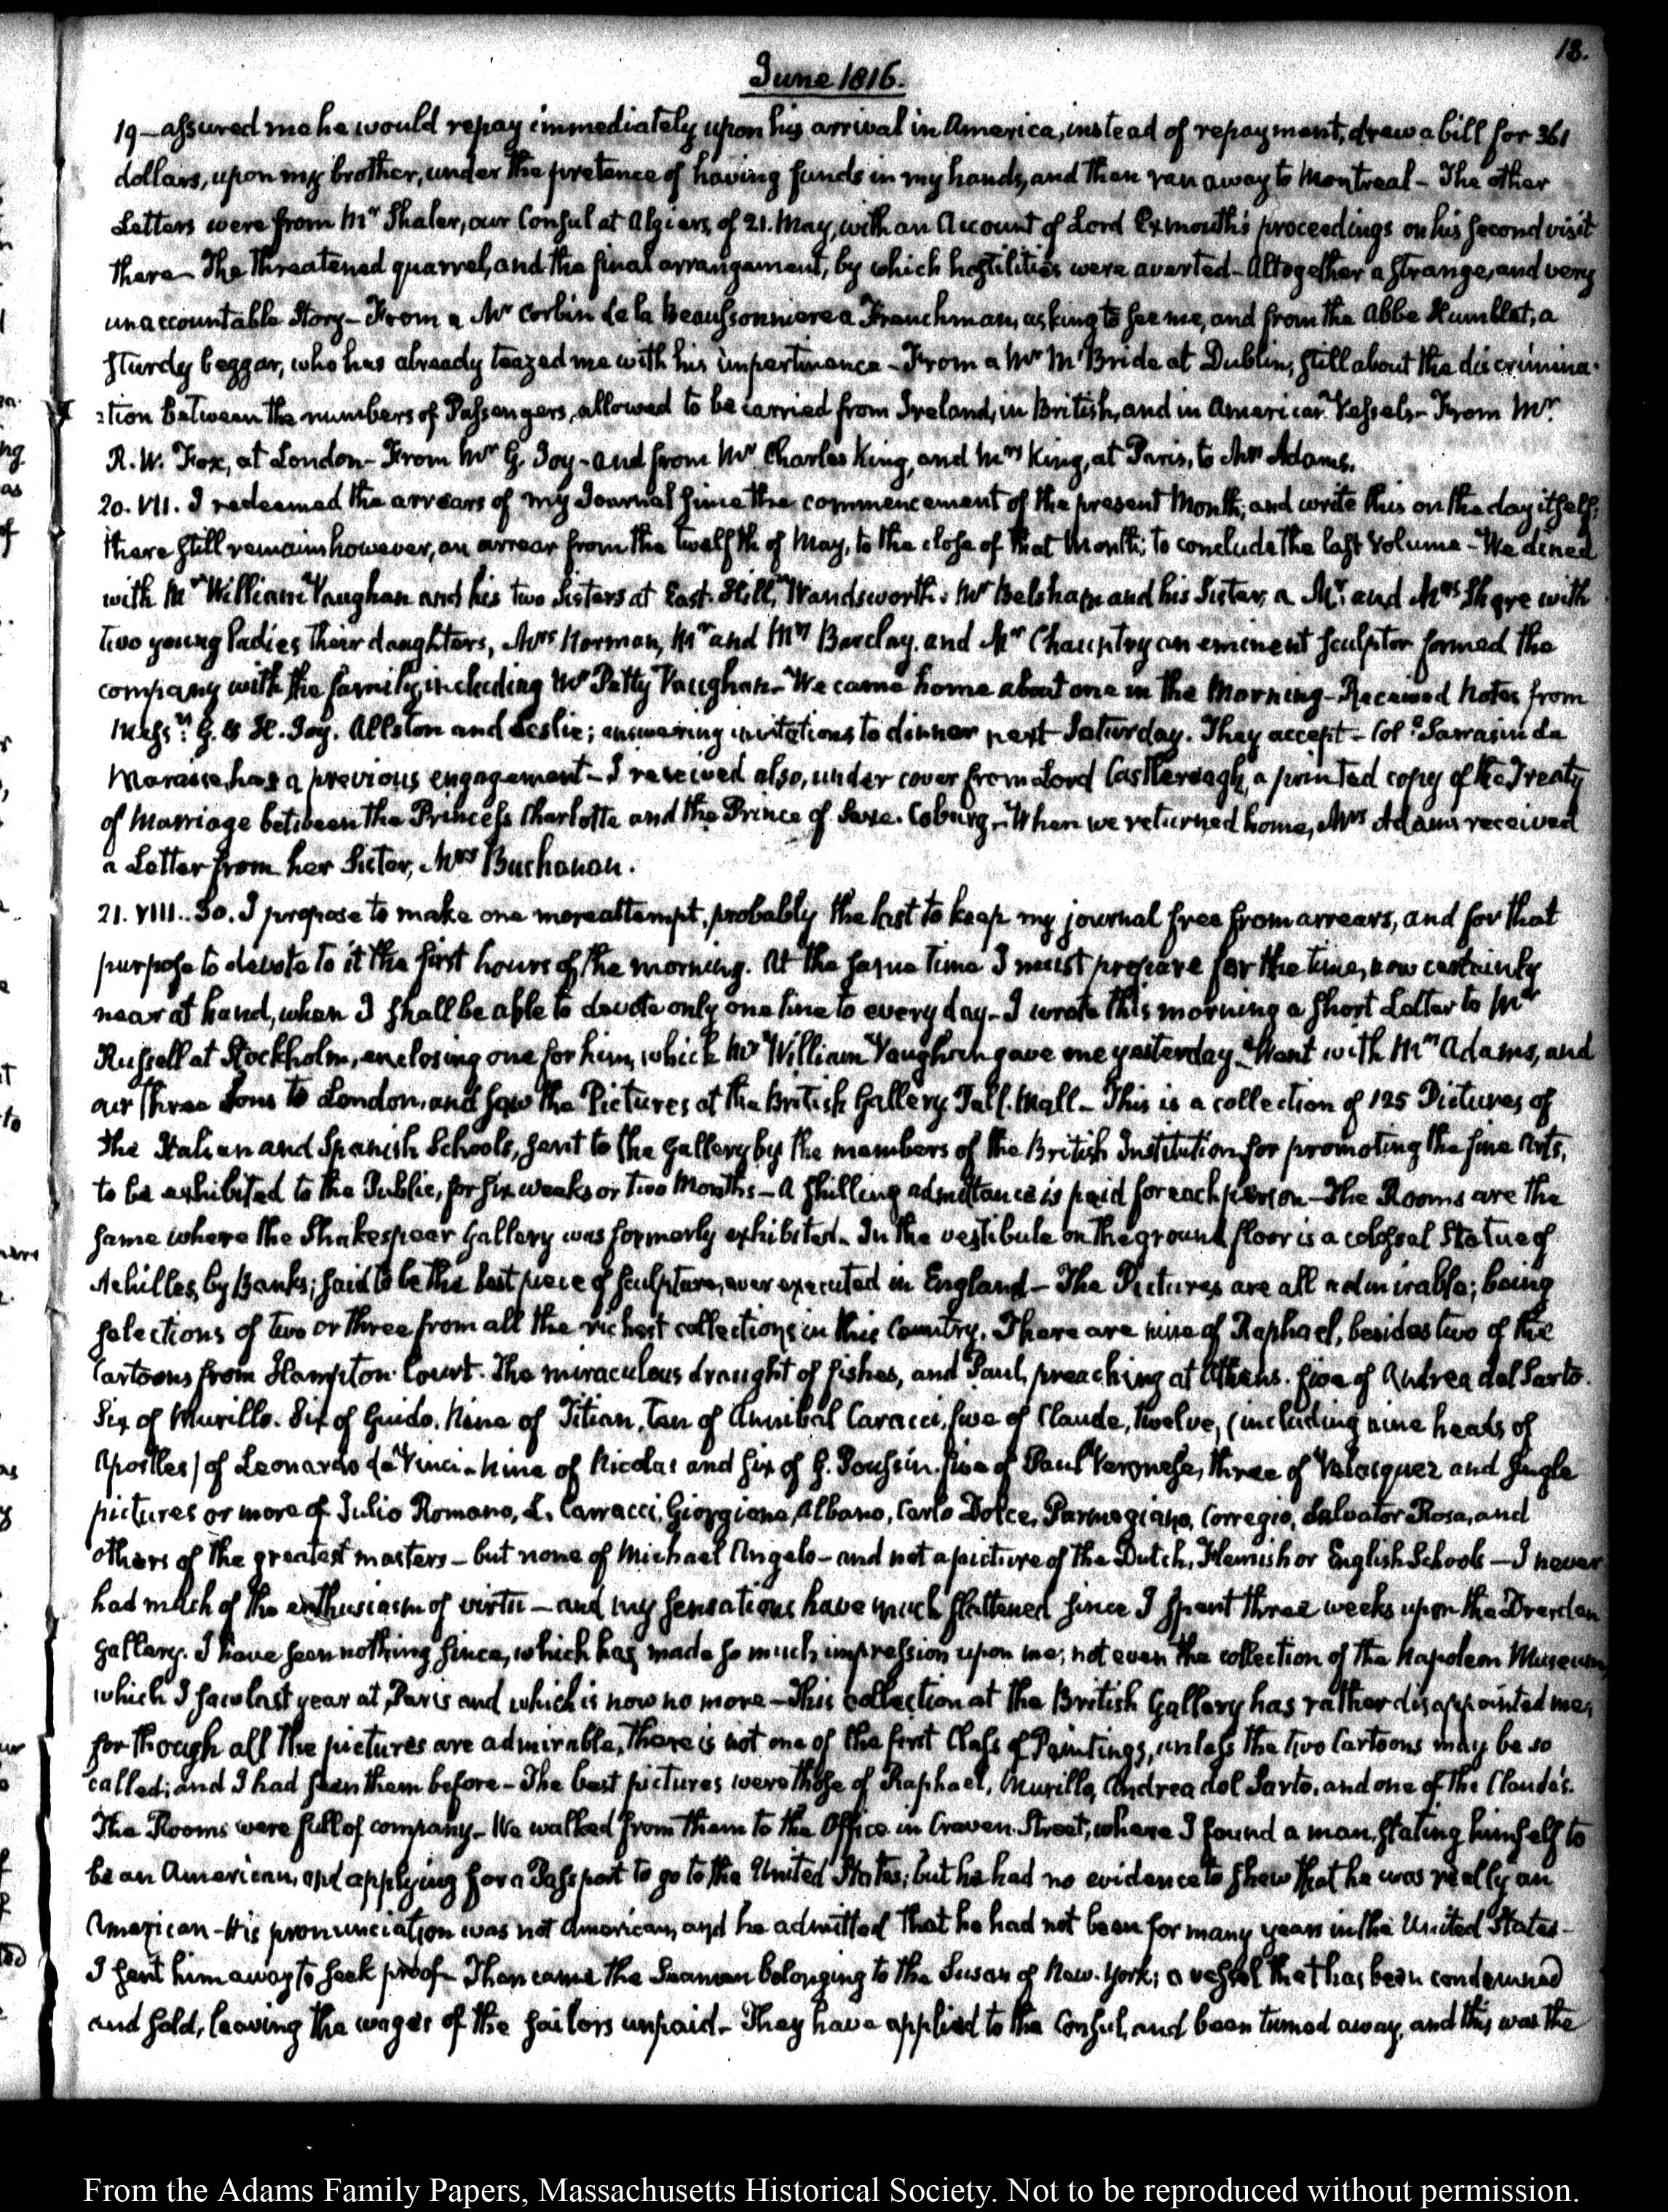 18.
June 1816.
19 — assured me he would repay immediately upon his arrival in America, instead of repayment, drew a bill for 361
dollars, upon my brother, under the pretence of having funds in my hands, and then ran away to Montreal – The other
Letters were from Mr Shaler, our Consul at Algiers, of 21. May, with an Account of Lord Exmouth's proceedings on his second visit
there – The threatened quarrel, and the final arrangement, by which hostilities were averted – Altogether a strange, and very
unaccountable story – From a Mr Corbin de la Beaussonniere a Frenchman, asking to see me, and from the Abbe Humblet, a
sturdy beggar, who has already teazed me with his impertinence – From a Mr McBride at Dublin, still about the discrimina-
:tion between the numbers of Passengers, allowed to be carried from Ireland, in British, and in American Vessels – From Mr
R. W. Fox, at London – From Mr G. Joy – and from Mr Charles King, and Mrs King, at Paris, to Mrs Adams.
20. VII. I redeemed the arrears of my Journal since the commencement of the present Month; and write this on the day itself;
there still remains however, an arrear from the twelfth of May, to the close of that Month; to conclude the last volume – We dined
with Mr William Vaughan and his two Sisters at East-Hill, Wandsworth: Mr Belsham and his Sister, a Mr and Mrs Shore with
two young Ladies their daughters, Mrs Norman, Mr and Mrs Barclay, and Mr Chauntry an eminent sculptor formed the
company with the family, including Mr Petty Vaughan – We came home about one in the Morning – Received Notes from
Messrs: G. & H. Joy, Allston and Leslie; answering invitations to dinner next Saturday. They accept – Coll Sarrasin de
Maraise, has a previous engagement – I received also, under cover from Lord Castlereagh, a printed copy of the Treaty
of Marriage between the Princess Charlotte and the Prince of Saxe-Coburg – When we returned home, Mrs Adams received
a Letter from her Sister, Mrs Buchanan.
21. VIII.. 30. I propose to make one more attempt, probably the last to keep my journal free from arrears, and for that
purpose to devote to it the first hours of the morning. At the same time I must prepare for the time, now certainly
near at hand, when I shall be able to devote only one line to every day – I wrote this morning a short Letter to Mr
Russell at Stockholm, enclosing one for him, which Mr William Vaughan gave me yesterday – Went with Mrs Adams, and
our three Sons to London, and saw the Pictures at the British Gallery, Pall-Mall – This is a collection of 125 Pictures of
the Italian and Spanish Schools, sent to the Gallery by the members of the British Institution for promoting the fine Arts,
to be exhibited to the Public, for six weeks or two Months – A shilling admittance is paid for each person – The Rooms are the
same where the Shakespear Gallery was formerly exhibited – In the vestibule on the ground floor is a colossal Statue of
Achilles, by Banks; said to be the best piece of sculpture, ever executed in England – The Pictures are all admirable; being
selections of two or three from all the richest collections in this Country. There are nine of Raphael, besides two of the
Cartoons from Hampton Court. The miraculous draught of fishes, and Paul, preaching at Athens. five of Andrea del Sarto.
Six of Murillo. Six of Guido. Nine of Titian, Ten of Annibal Caracci, five of Claude, twelve, (including nine heads of
Apostles) of Leonardo da Vinci – Nine of Nicolas and six of G. Poussin. five of Paul Veronese, three of Velasquez and single
pictures or more of Julio Romano, L. Carracci, Giorgione, Albano, Carlo Dolce, Parmegiano, Corregio, Salvator Rosa, and
others of the greatest masters – but none of Michael Angelo – and not a picture of the Dutch, Flemish or English Schools – I never
had much of the enthusiasm of virtu – and my sensations have much flattened since I spent three weeks upon the Dresden
gallery. I have seen nothing since, which has made so much impression upon me; not even the collection of the Napoleon Museum,
which I saw last year at Paris and which is now no more – This collection at the British Gallery has rather disappointed me;
for though all the pictures are admirable, there is not one of the first Class of Paintings, unless the two Cartoons may be so
called; and I had seen them before – The best pictures were those of Raphael, Murillo, Andrea del Sarto, and one of the Claude's.
The Rooms were full of company – We walked from them to the Office in Craven-Street, where I found a man, stating himself to
be an American, and applying for a Passport to go to the United States; but he had no evidence to shew that he was really an
American – His pronunciation was not American, and he admitted that he had not been for many years in the United States –
I sent him away to seek proof – Then came the Seamen belonging to the Susan of New-York; a vessel that has been condemned
and sold, leaving the wages of the sailors unpaid – They have applied to the Consul, and been turned away, and this was the
From the Adams Family Papers, Massachusetts Historical Society. Not to be reproduced without permission.